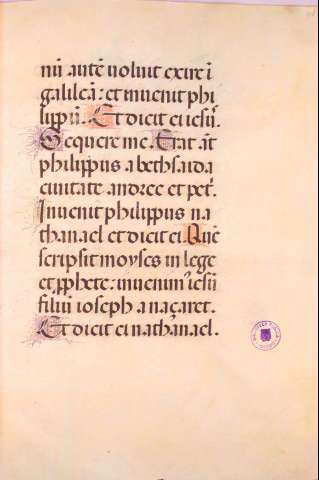 nū autē uoluit exire ī
galileā: et inuenit phi
lippū. Et dicit ei iesū.
Sequere me. Erat aūt
philippus a bethsaida
ciuitate andree et pet̄.
Inuenit philippus na
thanael et dicit ei. Quē
scripsit moyses in lege
et ꝓphete: inuenim̄ iesū
filiū ioseph a naçaret.
Et dicit ei nathanael.